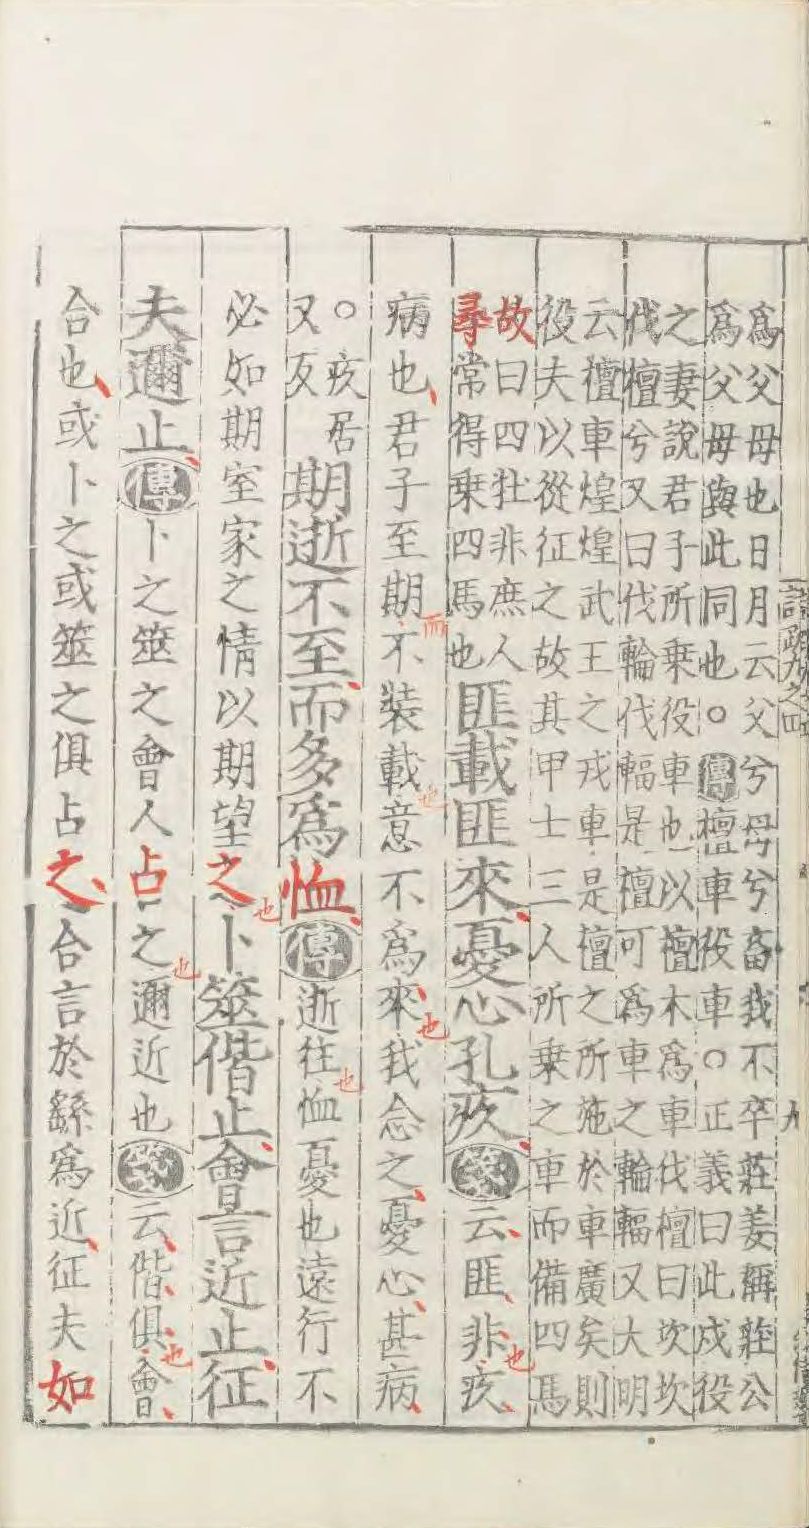 詩疏九之四
九
爲父母也日月云父兮母兮畜我不卒莊姜稱莊公
爲父母與此同也○傳檀車役車○正義曰此戍役
之妻說君子所乗役車也以檀木爲車伐檀曰坎坎
伐檀兮又曰伐輪伐輻是檀可爲車之輪輻又大明
云檀車煌煌武王之戎車是檀之所施於車廣矣則
役夫以從征之故其甲士三人所乗之車而備四馬
故曰四牡非庶人
尋常得乗四馬也
匪載匪來憂心孔疚箋云匪非也疚
病也君子至期而不裝載意也不爲來也我念之憂心甚病
○疚居
又反
期逝不至而多爲恤傳逝往也恤憂也遠行不
必如期室家之情以期望之也卜筮偕止會言近止征
夫邇止傳卜之筮之會人占之也邇近也箋云偕俱也會
合也或卜之或筮之俱占之合言於繇爲近征夫如